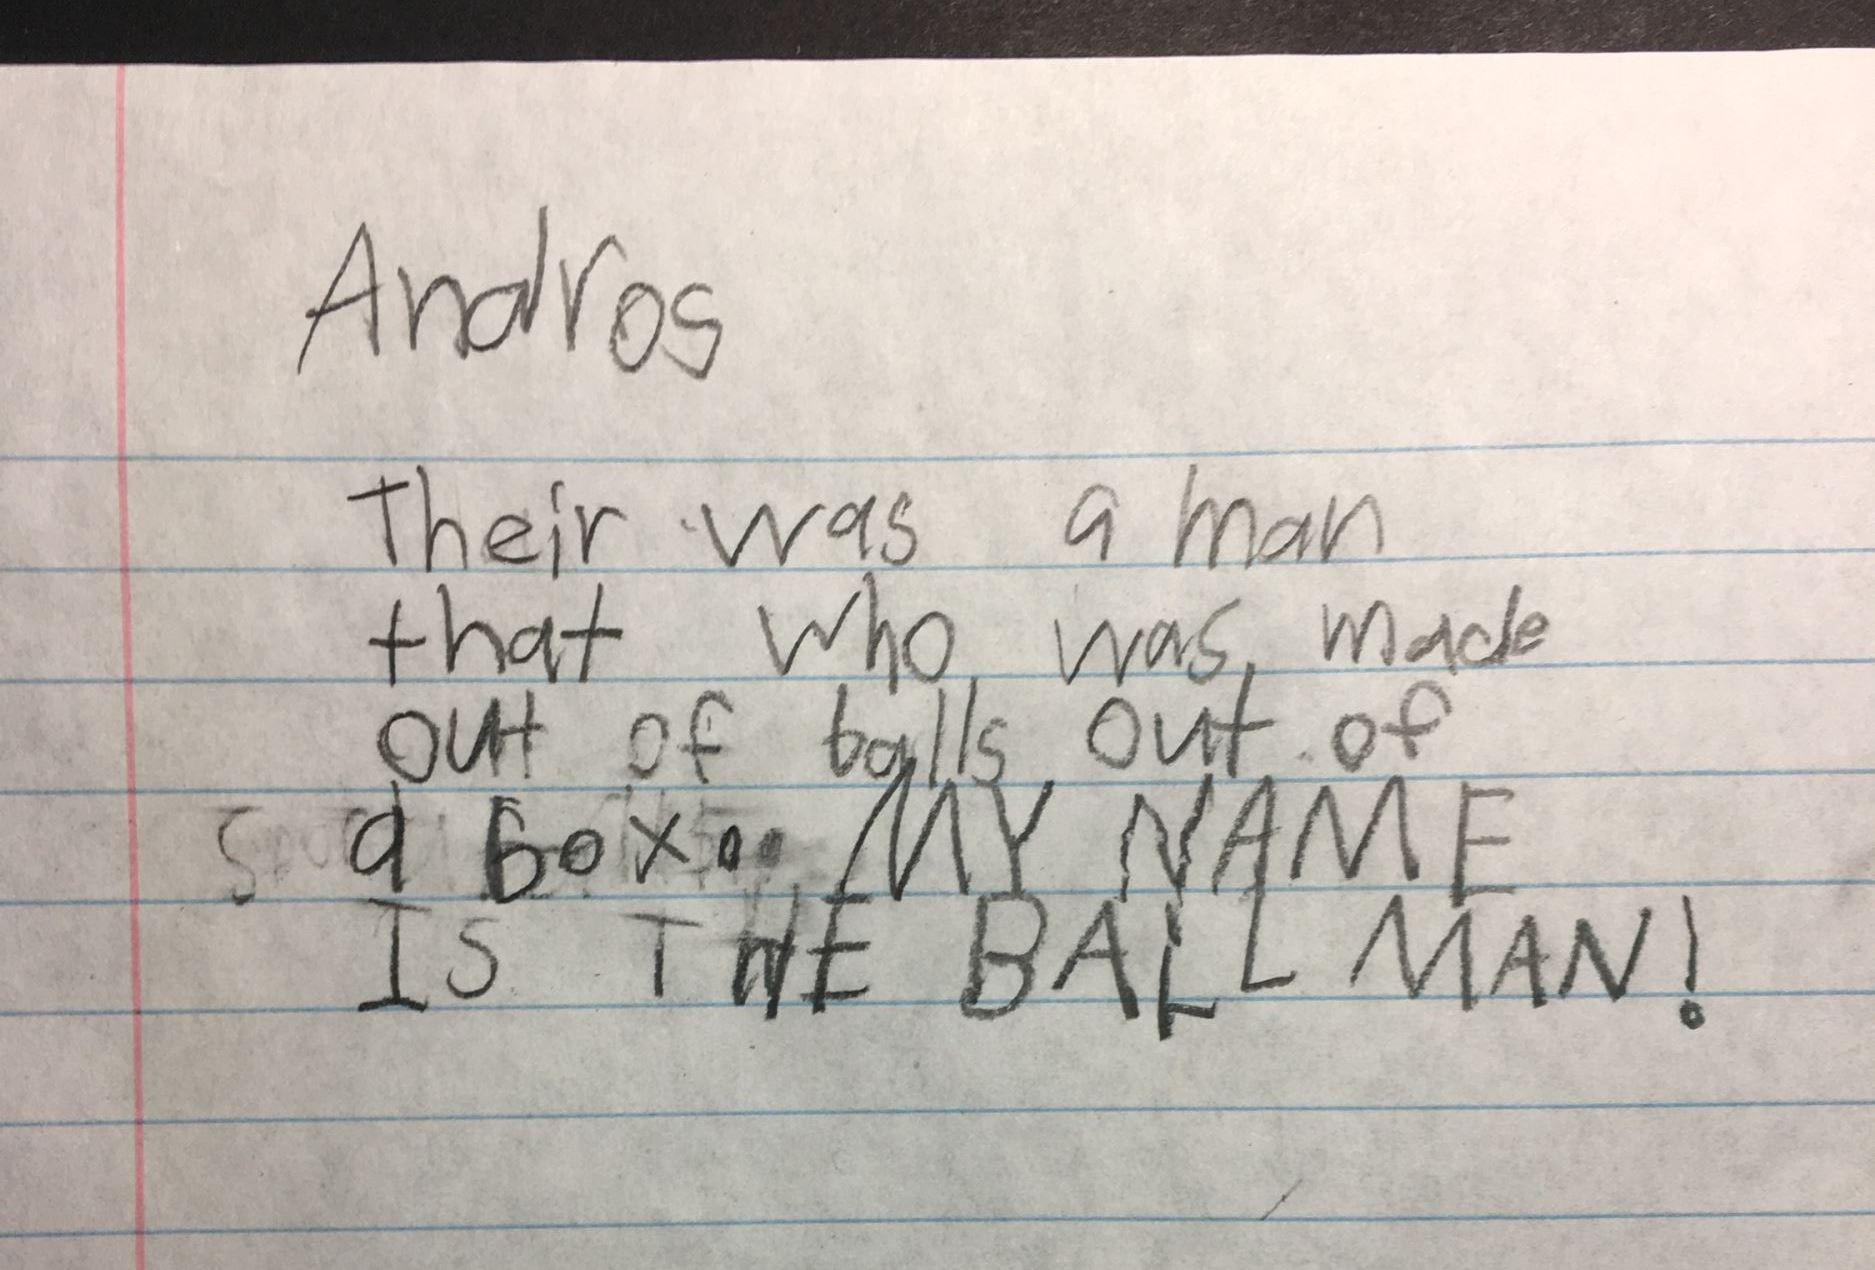 Andros
Their was a man
that who was made
out of balls out of
a box.. MY NAME
IS THE BALL MAN!